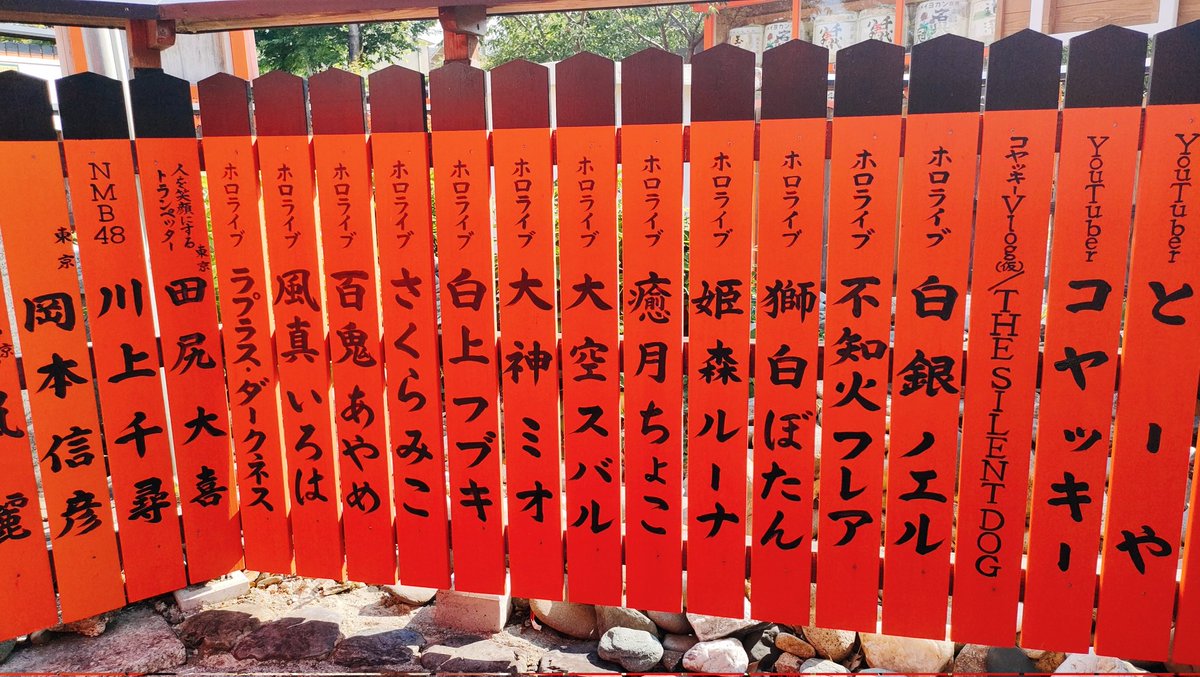 YouTuber
とーや
YouTuber
コヤッキー
コヤッキーVlog(仮)/THE SILENT DOG
ホロライブ
白銀ノエル
ホロライブ
不知火フレア
ホロライブ
獅白ぼたん
ホロライブ
姫森ルーナ
ホロライブ
癒月ちょこ
ホロライブ
大空スバル
ホロライブ
大神ミオ
ホロライブ
白上フブキ
ホロライブ
さくらみこ
ホロライブ
百鬼あやめ
ホロライブ
風真いろは
ホロライブ
ラプラス・ダークネス
東京
人を笑顔にする
トランペッター
田尻大喜
NMB48
川上千尋
東京
岡本信彦
京
麗